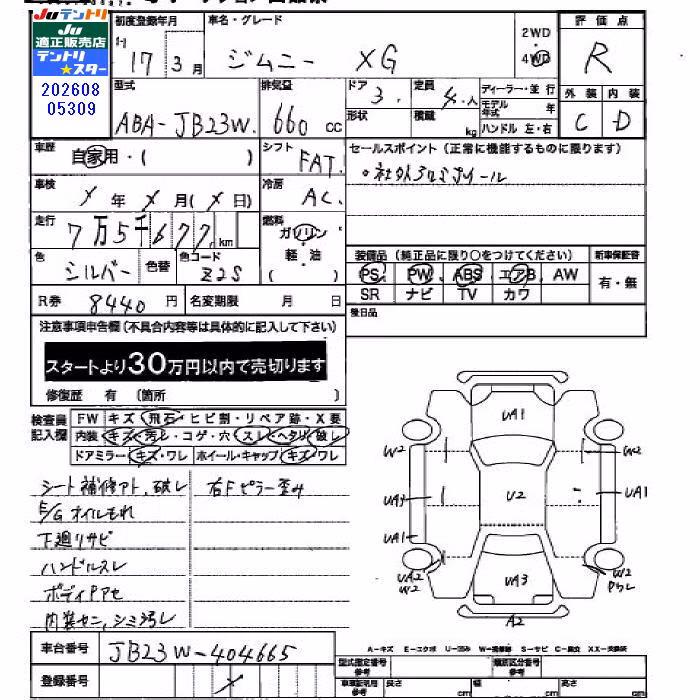 Juテントリ
Ju
適正販売店
テントリ
★スター
202608
05309
初度登録年月
17 3月
車名・グレード
ジムニー XG
2WD
4WD
評価点
R
外装 内装
C D
型式
ABA-JB23W.
排気量
660 cc
ドア
3.
形状
定員
4.人
積載
kg
ディーラー・並行
モデル年式 年
ハンドル 左・右
車歴
自家用・( )
シフト
FAT.
セールスポイント(正常に機能するものに限ります)
。社外アルミホイール
車検
X 年 X 月(X 日)
冷房
AC.
走行
7万5千677 km
燃料
ガソリン
軽・油
( )
色
シルバー
色替
色コード
Z2S
装備品(純正品に限り〇をつけてください)
新車保証書
PS PW ABS エアB AW
SR ナビ TV カワ
有・無
R券 8440 円
名変期限 月 日
後日品
注意事項申告欄(不具合内容等は具体的に記入して下さい)
スタートより30万円以内で売切ります
修復歴 有 (箇所 )
検査員
記入欄
FW キズ・飛石・ヒビ割・リペア跡・X要
内装 キズ・汚レ・コゲ・穴・スレ・ヘタリ・破レ
ドアミラー キズ・ワレ ホイール・キャップ キズ・ワレ
シート補修アト、破レ 右Fピラー歪み
E/Gオイルもれ
下廻リサビ
ハンドルスレ
ボディアセ
内装セニ、シミ汚レ
UA1
W2 W2
UA1 U2 UA1
UA1
UA2
W2
UA3
W2
A2
車台番号 JB23W-404665
登録番号 X
A-キズ E-エクボ U-凹み W-補修跡 S-サビ C-腐食 XX-交換済
型式指定番号
参考
類別区分番号
参考
車庫証明用
参考
長さ cm 幅 cm 高さ cm